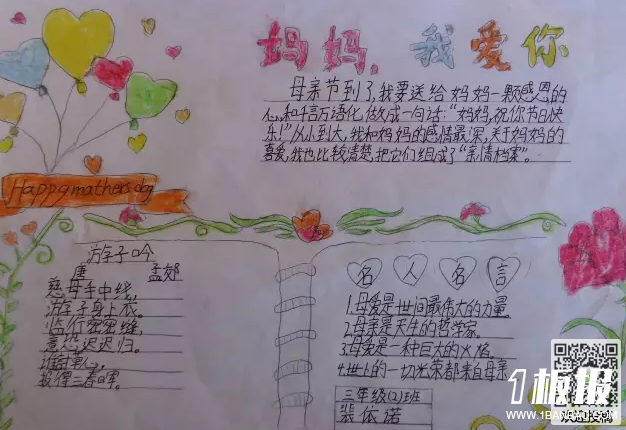 妈妈,我爱你
母亲节到了,我要送给妈妈一颗感恩的
心,和千言万语化做成一句话:“妈妈,祝你节日快
乐!”从小到大,我和妈妈的感情最深,关于妈妈的
喜爱,我也比较清楚,把它们组成了“亲情档案”。
Happy mathers dag
游子吟
唐 孟郊
慈母手中线,
游子身上衣。
临行密密缝,
意恐迟迟归。
报得三春晖。
名人名言
1.母爱是世间最伟大的力量。
2.母亲是天生的哲学家。
3.母爱是一种巨大的火焰。
4.世上的一切光荣都来自母亲
三年级(2)班
裴依诺
1板报
WWW.1BANBAO.COM
欢迎投稿